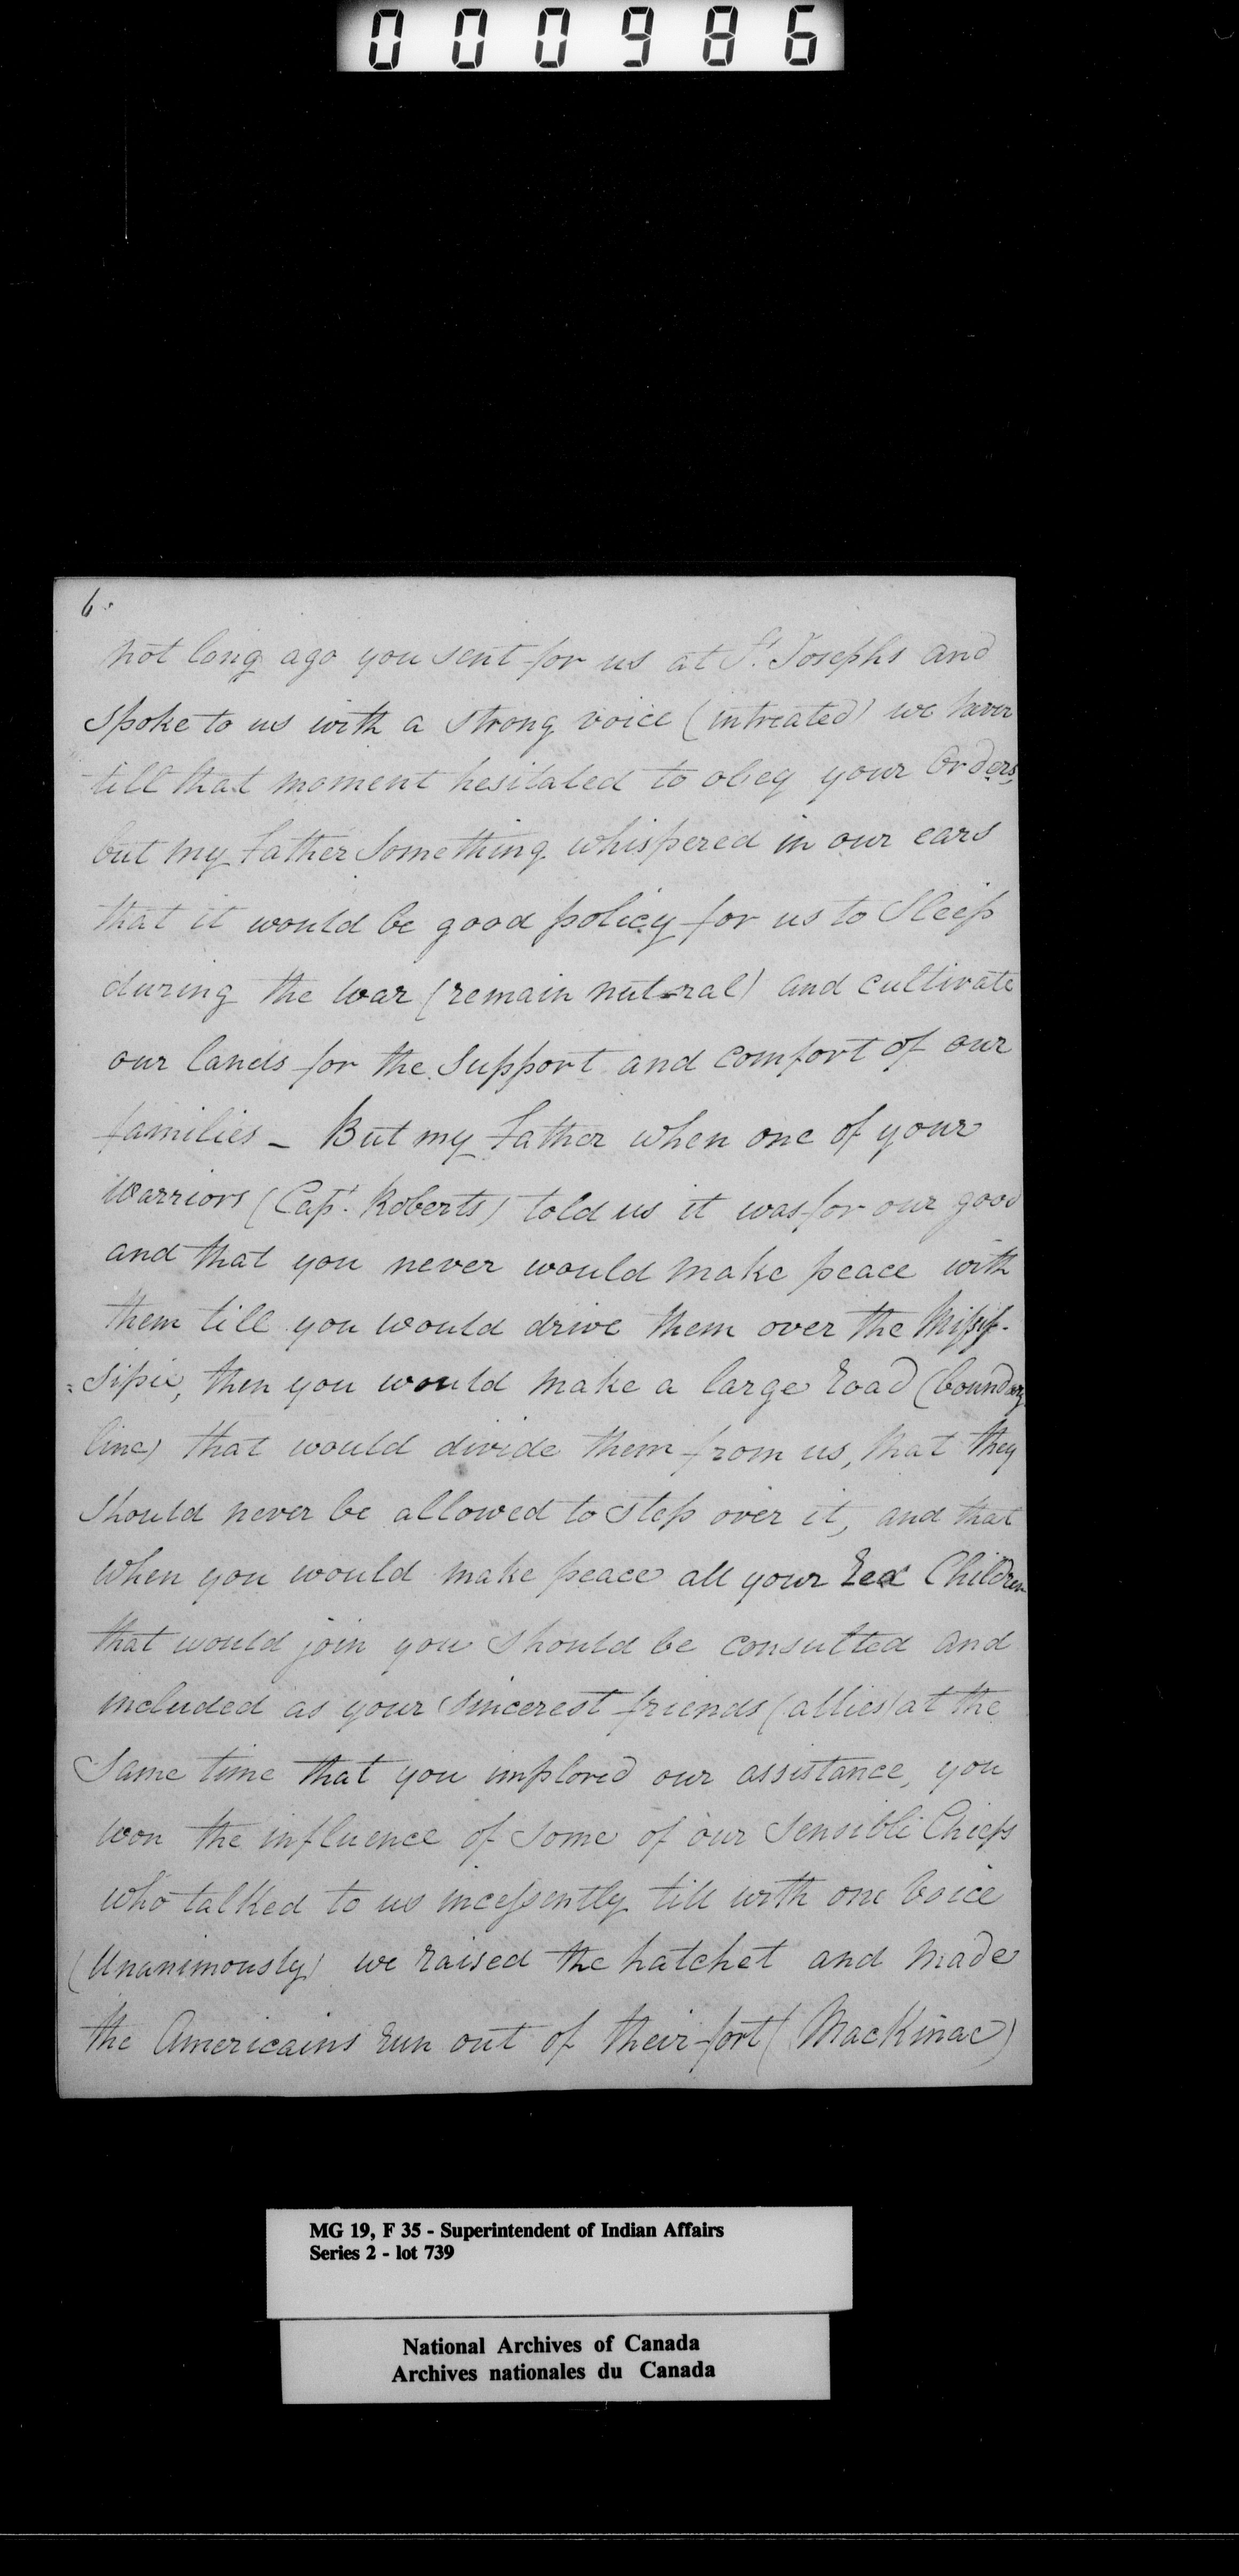 000986
6.
not long ago you sent for us at St. Josephs and
Spoke to us with a strong voice (intreated) we never
till that moment hesitated to obey your Orders,
but my Father Something whispered in our ears
that it would be good policy for us to Sleep
during the war (remain nutural) and cultivate
our lands for the Support and comfort of our
families – But my Father when one of your
Warriors (Capt. Roberts) told us it was for our good
and that you never would make peace with
them till you would drive them over the Missis-
=sipie, then you would make a large Road (boundary
line) that would divide them from us, that they
should never be allowed to step over it, and that
when you would make peace all your Red Children
that would join you should be consulted and
included as your sincerest friends (allies) at the
Same time that you implored our assistance, you
won the influence of some of our Sensible Chiefs
who talked to us incessently till with one Voice
(Unanimously) we raised the hatchet and made
the Americains run out of their fort (MacKinac)
MG 19, F 35 - Superintendent of Indian Affairs
Series 2 - lot 739
National Archives of Canada
Archives nationales du Canada